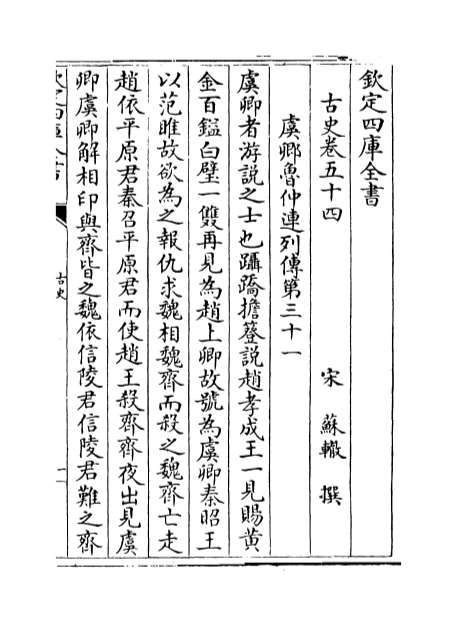 欽定四庫全書
古史卷五十四
宋 蘇轍 撰
虞卿魯仲連列傳第三十一
虞卿者游說之士也躡蹻擔簦說趙孝成王一見賜黃
金百鎰白璧一雙再見為趙上卿故號為虞卿秦昭王
以范雎故欲為之報仇求魏相魏齊而殺之魏齊亡走
趙依平原君秦召平原君而使趙王殺齊齊夜出見虞
卿虞卿解相印與齊皆之魏依信陵君信陵君難之齊
古史